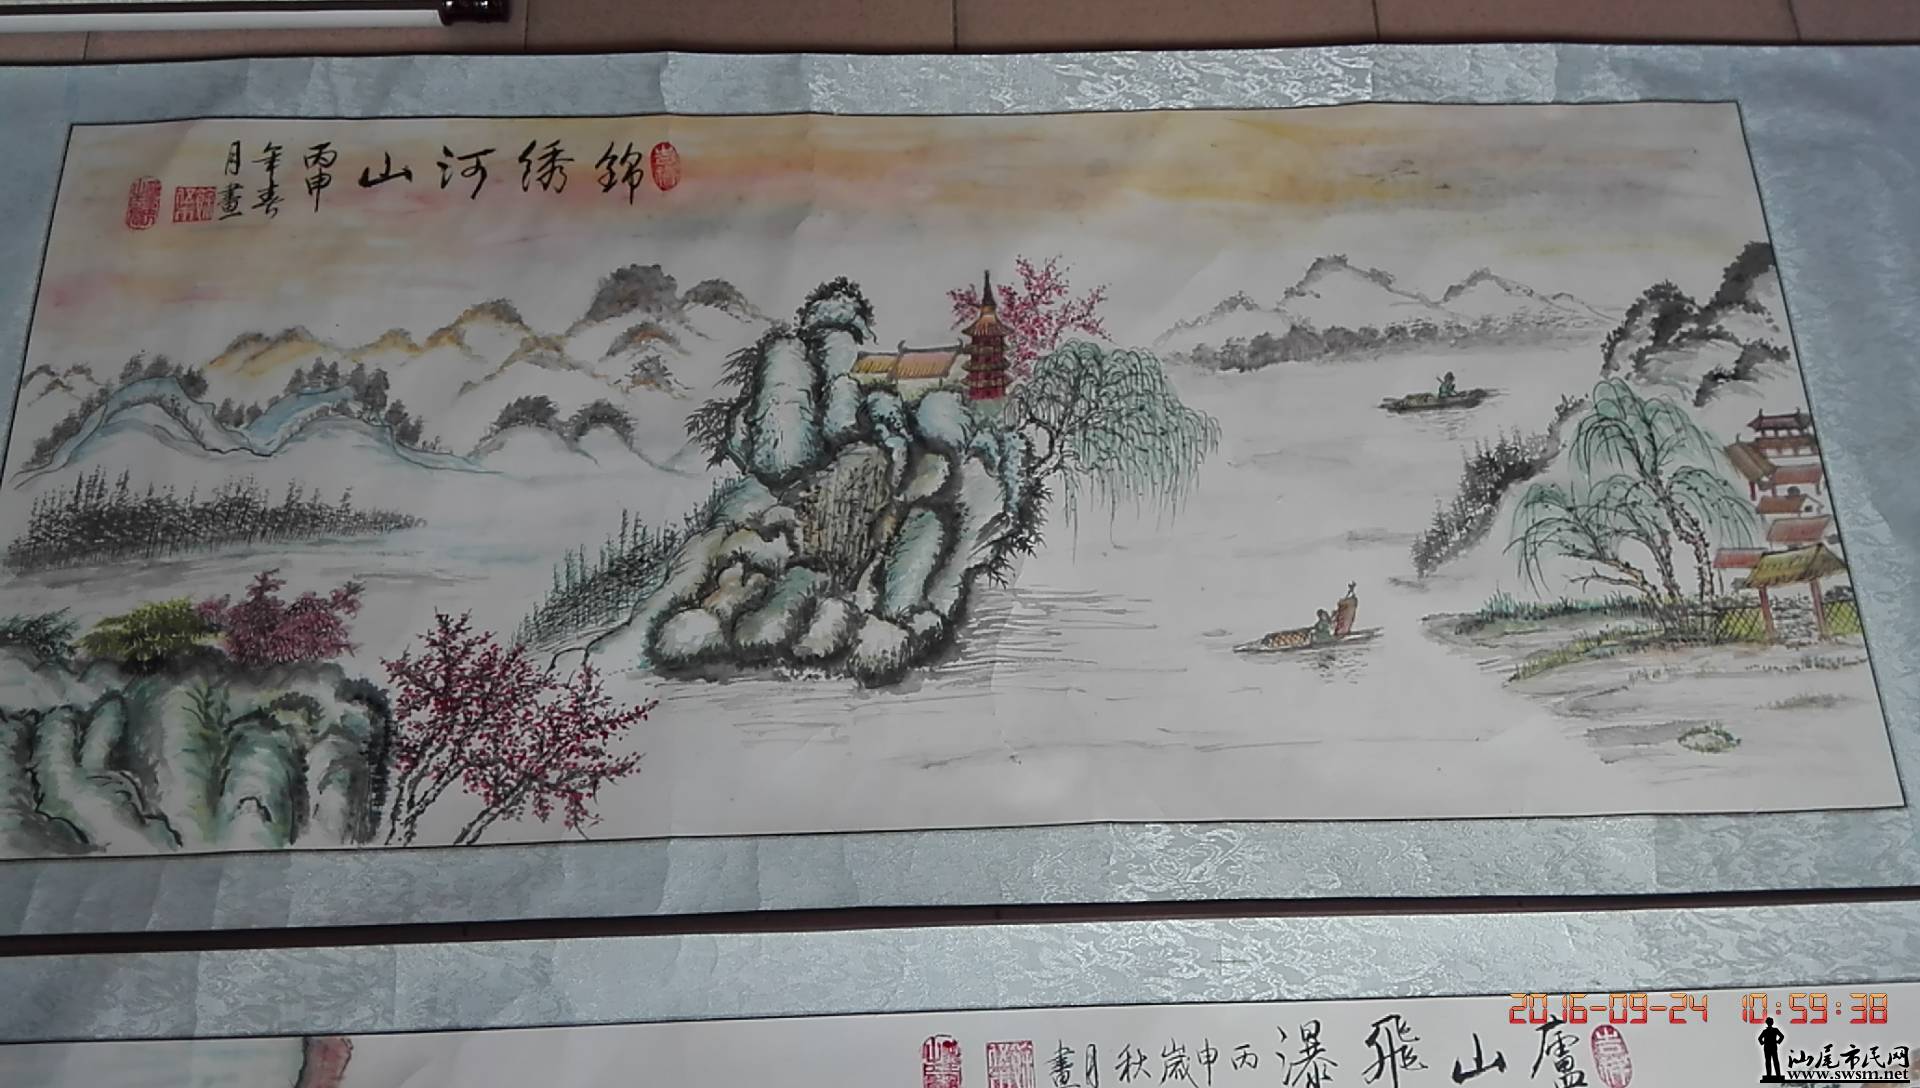 錦綉河山
丙申
年春
月畫
2016-09-24 10:59:38
廬山飛瀑
丙申歲秋月畫
汕尾市民网
www.swsm.net